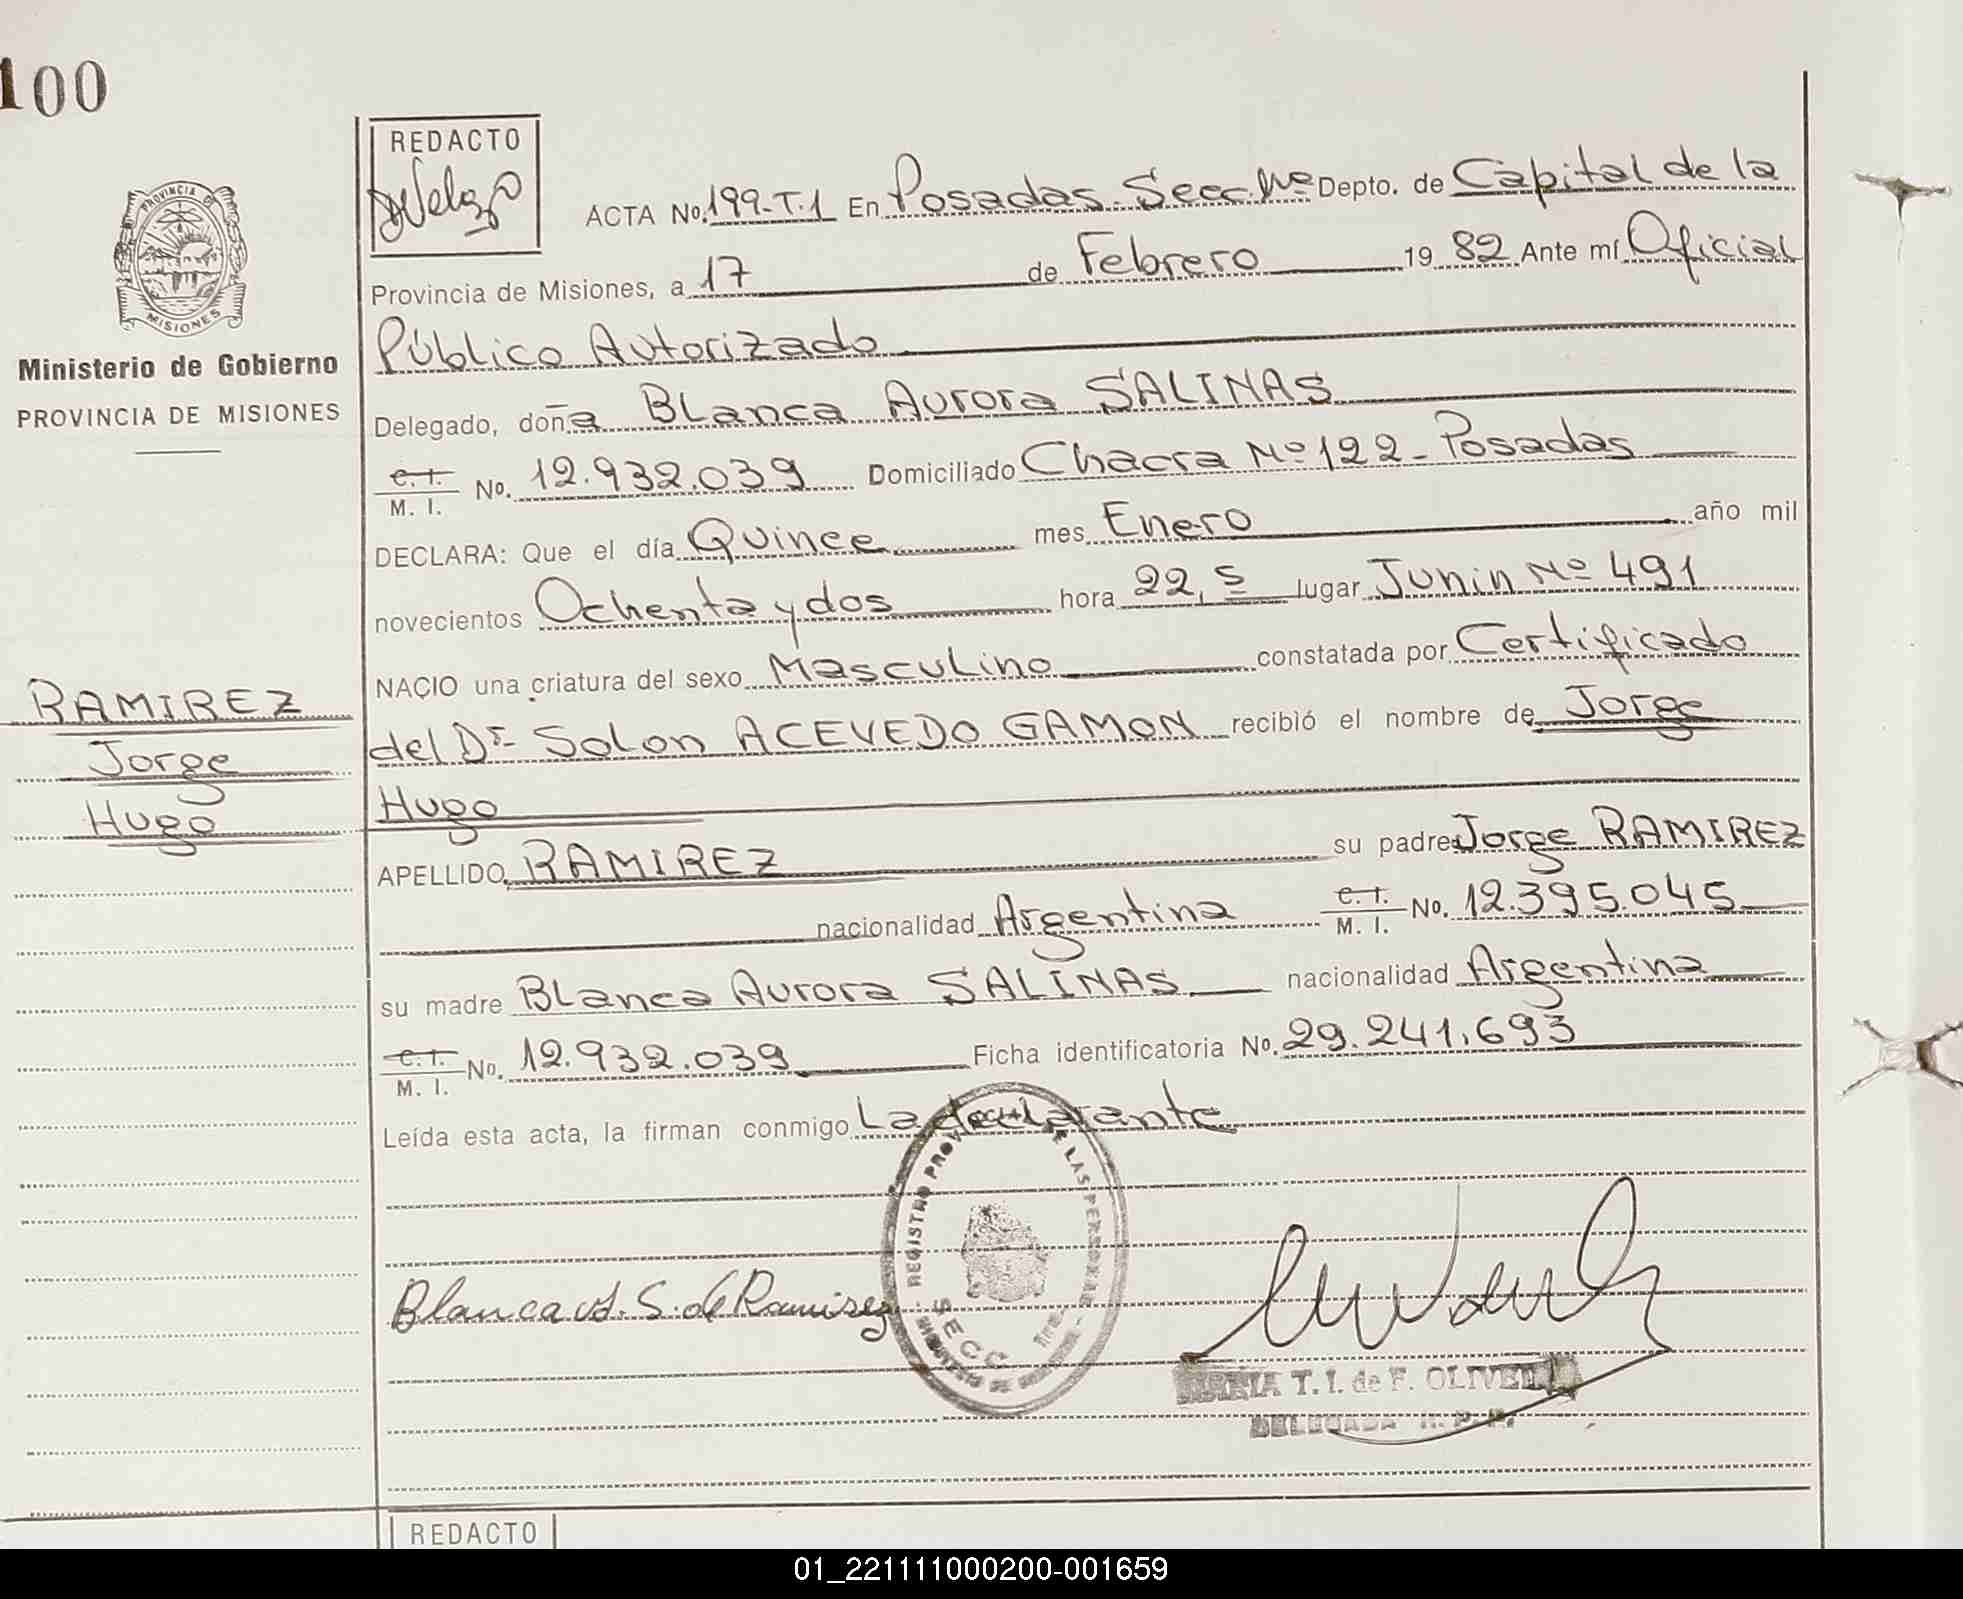 100
REDACTO
ACTA No. 199-T.1 En Posadas Secc. Depto. de Capital de la
Provincia de Misiones, a 17 de Febrero 19 82 Ante mí Oficial
Público Autorizado
Delegado, doña Blanca Aurora SALINAS
C.I. M. I. No. 12.932.039 Domiciliado Chacra Nº 122 - Posadas
DECLARA: Que el día Quince mes Enero año mil
novecientos Ochenta y dos hora 22,5 lugar Junin Nº 491
NACIO una criatura del sexo Masculino constatada por Certificado
del Dr Solon ACEVEDO GAMON recibió el nombre de Jorge
Hugo
APELLIDO RAMIREZ su padre Jorge RAMIREZ
nacionalidad Argentina C.I. M. I. No. 12.395.045
su madre Blanca Aurora SALINAS nacionalidad Argentina
C.I. M. I. No. 12.932.039 Ficha identificatoria No. 29.241.693
Leída esta acta, la firman conmigo La declarante
PROVINCIA DE
MISIONES
Ministerio de Gobierno
PROVINCIA DE MISIONES
RAMIREZ
Jorge
Hugo
Blanca A. S. de Ramirez
REGISTRO PROV DE LAS PERSONAS
SECC
MARIA T. I. de F. OLIVER
DELEGADA R. P. P.
REDACTO
01_221111000200-001659